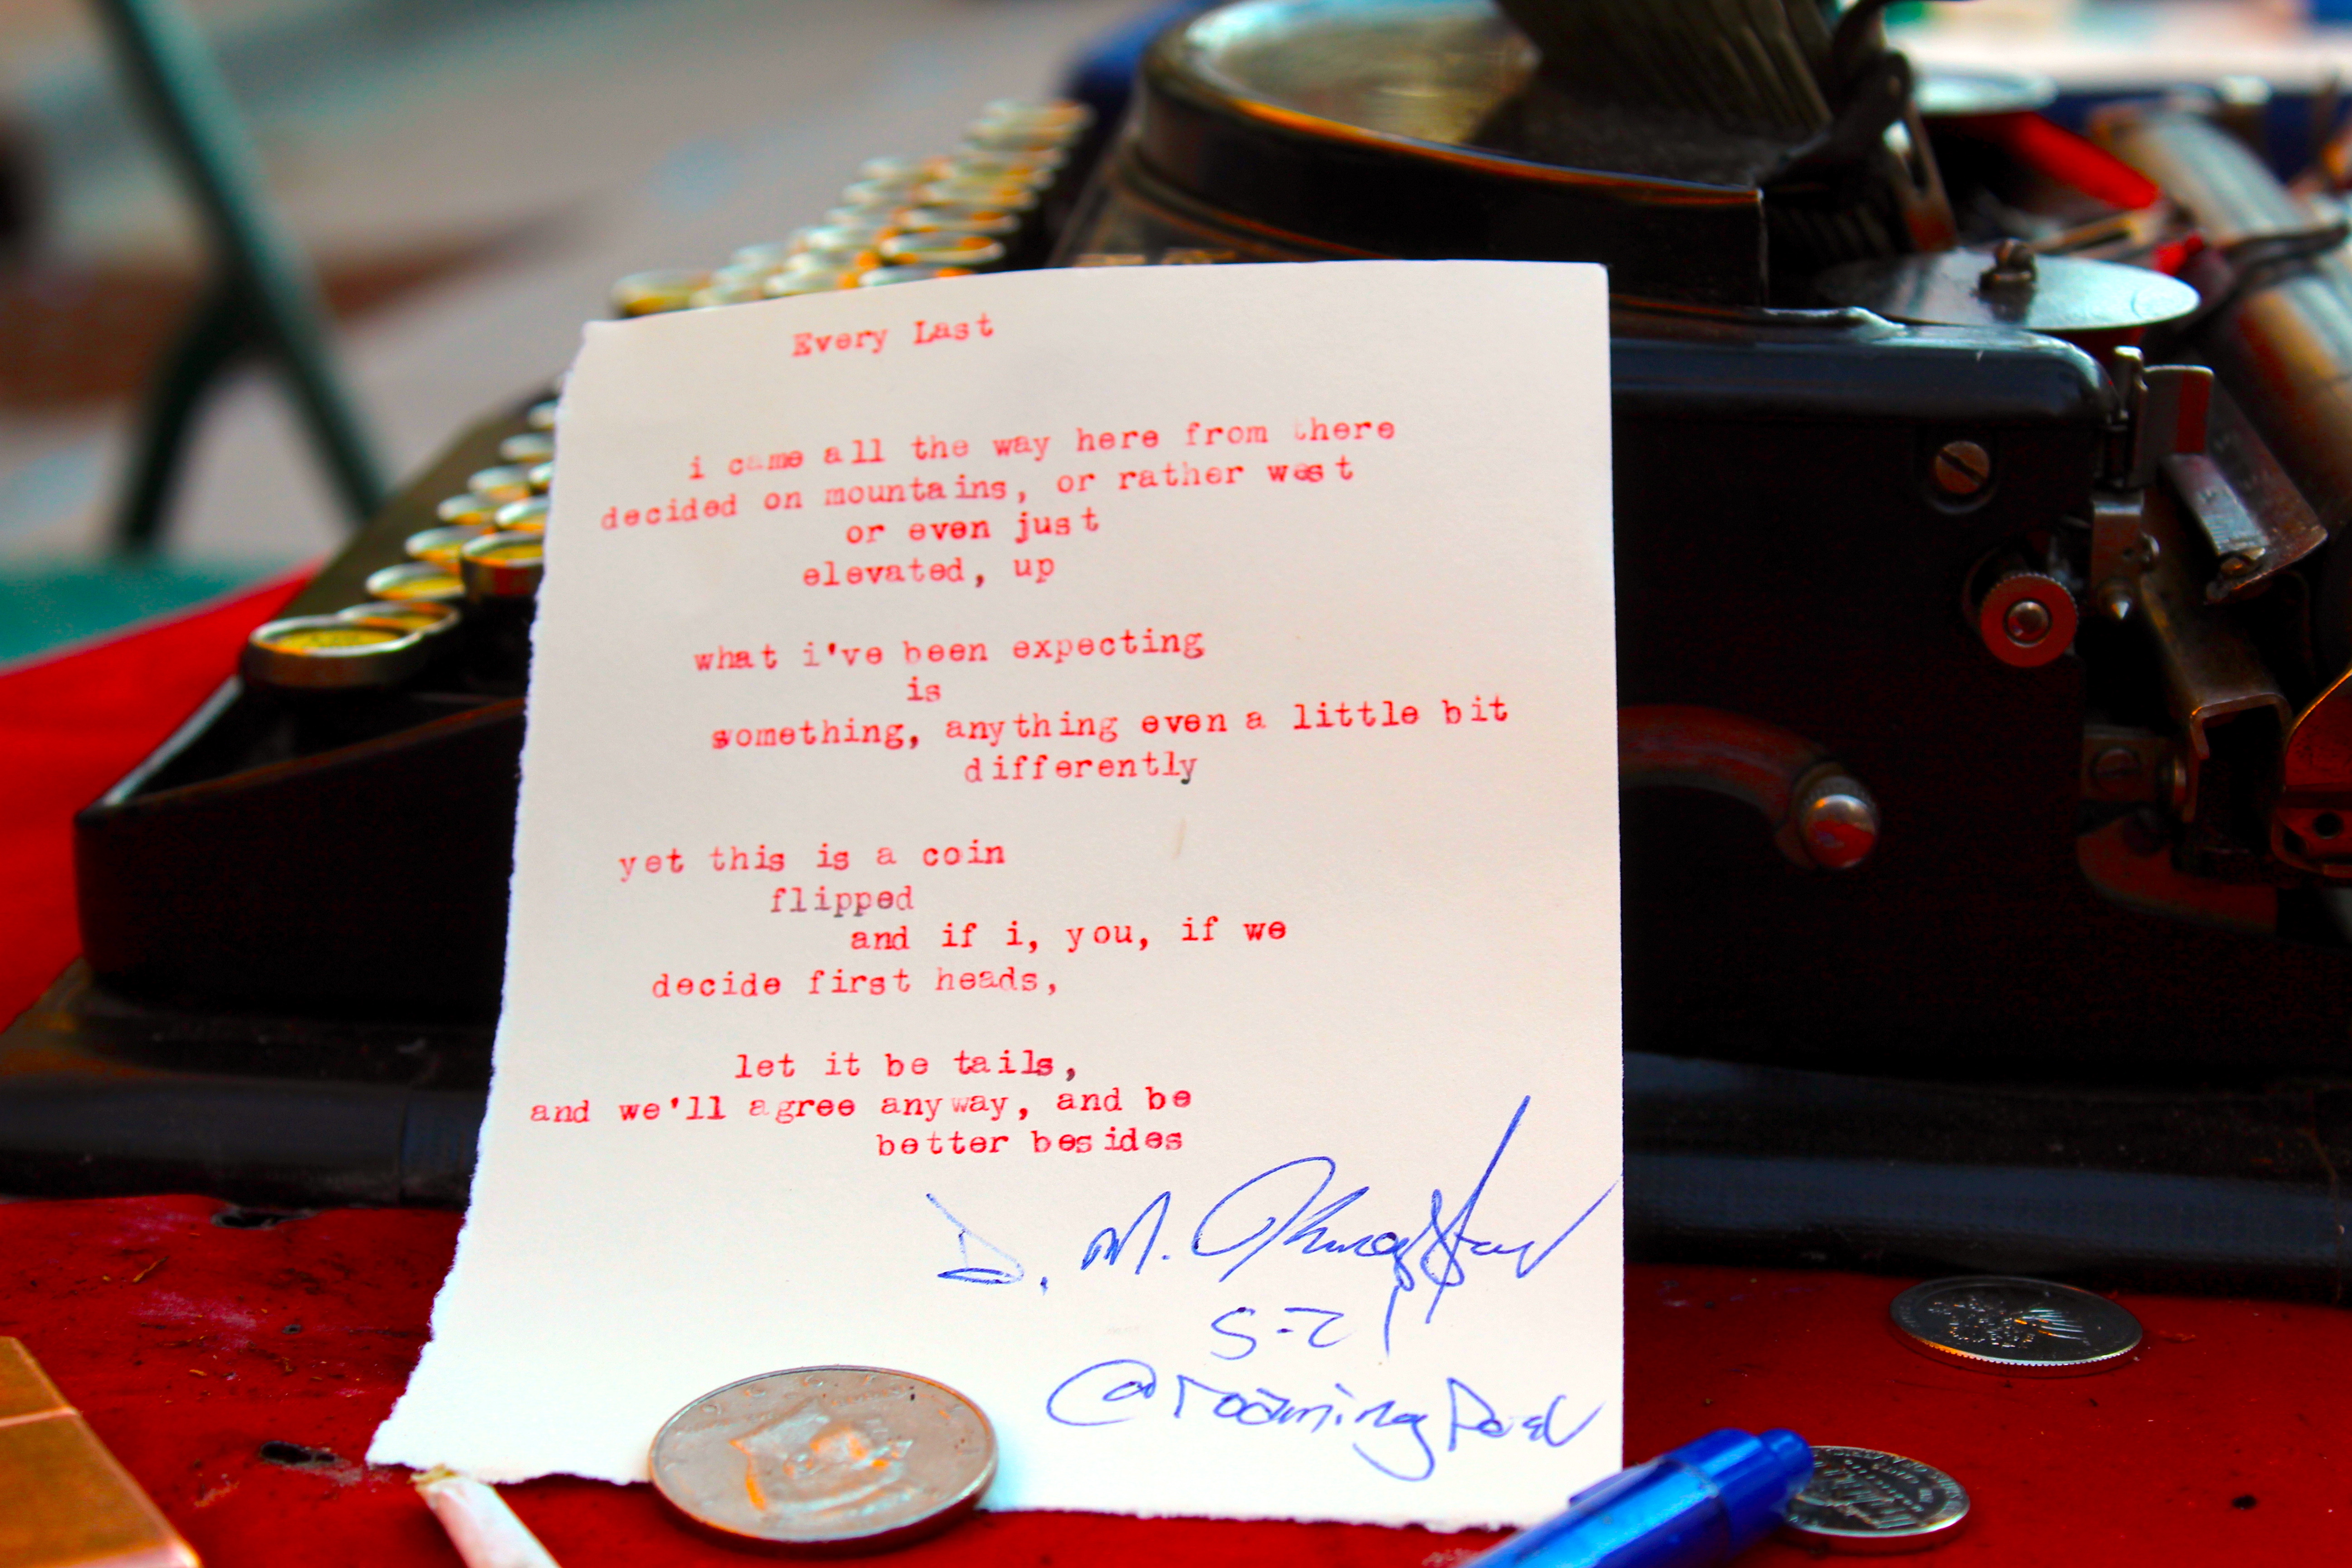 Every Last
i came all the way here from there
decided on mountains, or rather west
or even just
elevated, up
what i've been expecting
is
something, anything even a little bit
differently
yet this is a coin
flipped
and if i, you, if we
decide first heads,
let it be tails,
and we'll agree anyway, and be
better besides
D. M.
5-21
@roaming